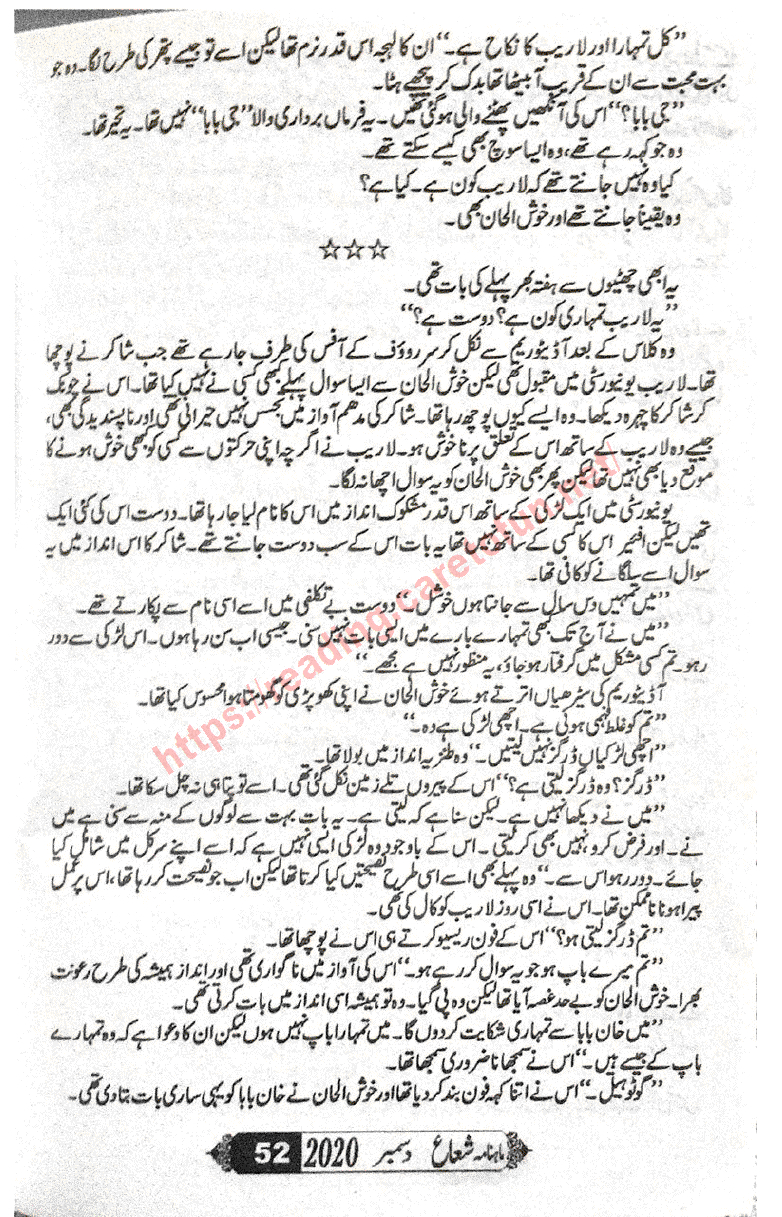 ”کل تمہارا اور لاریب کا نکاح ہے۔“ ان کا لہجہ اس قدر نرم تھا لیکن اسے تو جیسے پتھر کی طرح لگا۔ وہ جو
بہت محبت سے ان کے قریب آ بیٹھا تھا بدک کر پیچھے ہٹا۔
”جی بابا؟“ اس کی آنکھیں پھٹنے والی ہو گئی تھیں۔ یہ فرماں برداری والا ”جی بابا“ نہیں تھا۔ یہ تحیر تھا۔
وہ جو کہہ رہے تھے، وہ ایسا سوچ بھی کیسے سکتے تھے۔
کیا وہ نہیں جانتے تھے کہ لاریب کون ہے۔ کیا ہے؟
وہ یقیناً جانتے تھے اور خوش الحان بھی۔
☆☆☆
یہ ابھی چھٹیوں سے ہفتہ بھر پہلے کی بات تھی۔
”یہ لاریب تمہاری کون ہے؟ دوست ہے؟“
وہ کلاس کے بعد آڈیٹوریم سے نکل کر سر رؤف کے آفس کی طرف جا رہے تھے جب شاکر نے پوچھا
تھا۔ لاریب یونیورسٹی میں مقبول تھی لیکن خوش الحان سے ایسا سوال پہلے کبھی کسی نے نہیں کیا تھا۔ اس نے چونک
کر شاکر کا چہرہ دیکھا۔ وہ ایسے کیوں پوچھ رہا تھا۔ شاکر کی مدھم آواز میں تجسس نہیں حیرانی تھی اور ناپسندیدگی بھی،
جیسے وہ لاریب کے ساتھ اس کے تعلق پر ناخوش ہو۔ لاریب نے اگرچہ اپنی حرکتوں سے کسی کو کبھی خوش ہونے کا
موقع دیا بھی نہیں تھا لیکن پھر بھی خوش الحان کو یہ سوال اچھا نہ لگا۔
یونیورسٹی میں ایک لڑکی کے ساتھ اس قدر مشکوک انداز میں اس کا نام لیا جا رہا تھا۔ دوست اس کی کئی ایک
تھیں لیکن افیئر اس کا کسی کے ساتھ نہیں تھا یہ بات اس کے سب دوست جانتے تھے۔ شاکر کا اس انداز میں یہ
سوال اسے سلگانے کو کافی تھا۔
”میں تمہیں دس سال سے جانتا ہوں خوشل۔“ دوست بے تکلفی میں اسے اسی نام سے پکارتے تھے۔
”میں نے آج تک کبھی تمہارے بارے میں ایسی بات نہیں سنی۔ جیسی اب سن رہا ہوں۔ اس لڑکی سے دور
رہو۔ تم کسی مشکل میں گرفتار ہو جاؤ، یہ منظور نہیں ہے مجھے۔“
آڈیٹوریم کی سیڑھیاں اترتے ہوئے خوش الحان نے اپنی کھوپڑی کو گھومتا ہوا محسوس کیا تھا۔
”تم کو غلط فہمی ہوئی ہے۔ اچھی لڑکی ہے وہ۔“
”اچھی لڑکیاں ڈرگز نہیں لیتیں۔“ وہ طنزیہ انداز میں بولا تھا۔
”ڈرگز؟ وہ ڈرگز لیتی ہے؟“ اس کے پیروں تلے زمین نکل گئی تھی۔ اسے تو پتا ہی نہ چل سکا تھا۔
”میں نے دیکھا نہیں ہے۔ لیکن سنا ہے کہ لیتی ہے۔ یہ بات بہت سے لوگوں کے منہ سے سنی ہے میں
نے۔ اور فرض کرو، نہیں بھی کرتی۔ اس کے باوجود وہ لڑکی ایسی نہیں ہے کہ اسے اپنے سرکل میں شامل کیا
جائے۔ دور رہو اس سے۔“ وہ پہلے بھی اسے اسی طرح نصیحتیں کیا کرتا تھا لیکن اب جو نصیحت کر رہا تھا، اس پر عمل
پیرا ہونا ناممکن تھا۔ اس نے اسی روز لاریب کو کال کی تھی۔
”تم ڈرگز لیتی ہو؟“ اس کے فون ریسیو کرتے ہی اس نے پوچھا تھا۔
”تم میرے باپ ہو جو یہ سوال کر رہے ہو۔“ اس کی آواز میں ناگواری تھی اور انداز ہمیشہ کی طرح رعونت
بھرا۔ خوش الحان کو بے حد غصہ آیا تھا لیکن وہ پی گیا۔ وہ تو ہمیشہ اسی انداز میں بات کرتی تھی۔
”میں خان بابا سے تمہاری شکایت کردوں گا۔ میں تمہارا باپ نہیں ہوں لیکن ان کا دعوا ہے کہ وہ تمہارے
باپ کے جیسے ہیں۔“ اس نے سمجھانا ضروری سمجھا تھا۔
”گو ٹو ہیل۔“ اس نے اتنا کہہ فون بند کر دیا تھا اور خوش الحان نے خان بابا کو یہی ساری بات بتا دی تھی۔
ماہنامہ شعاع دسمبر 2020 52
https://reading.caretofun.net/